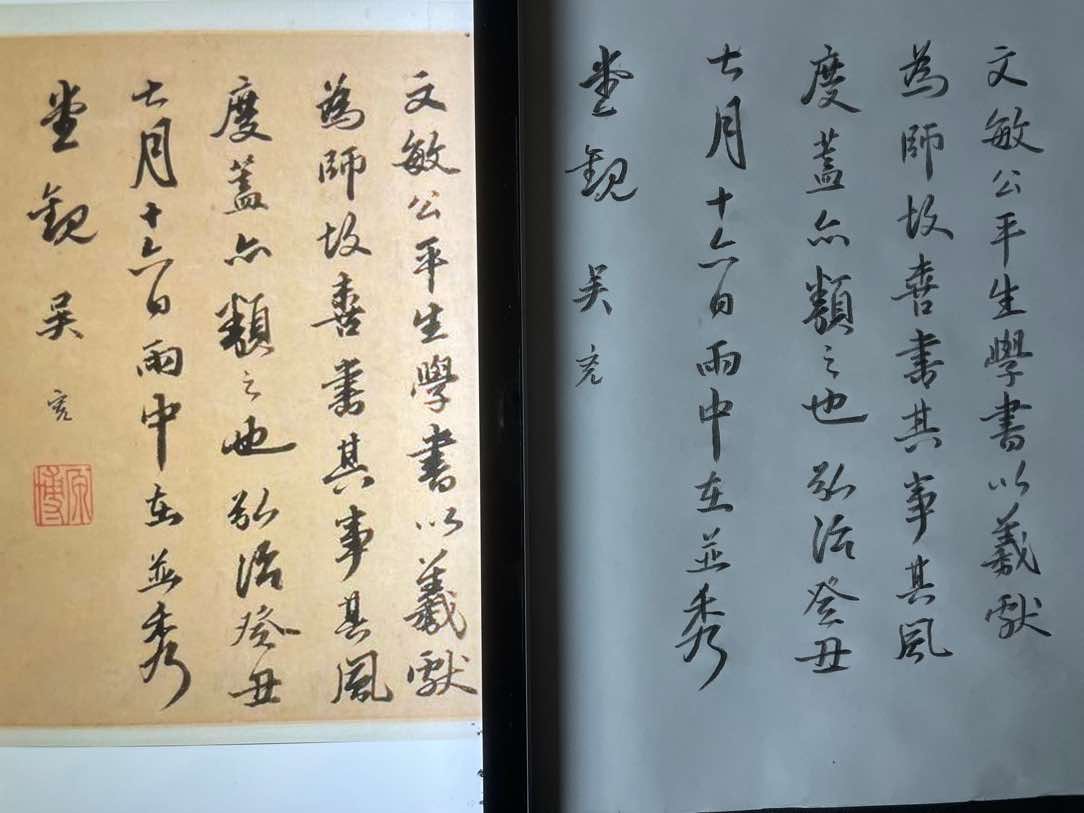 文敏公平生學書以羲獻
為師故喜書其事其風
度蓋亦類之也弘治癸丑
七月十六日雨中在並秀
堂觀吳寬
原博
文敏公平生學書以羲獻
為師故喜書其事其風
度蓋亦類之也弘治癸丑
七月十六日雨中在並秀
堂觀吳寬